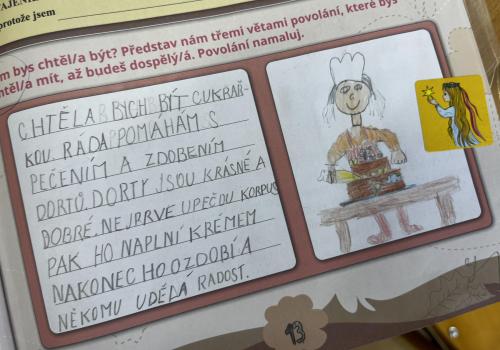 protože jsem
m bys chtěl/a být? Představ nám třemi větami povolání, které bys
htěl/a mít, až budeš dospělý/á. Povolání namaluj.
CHTĚLA BYCH BÝT CUKRAŘ-
KOU. RÁDA POMÁHÁM S
PEČENÍM A ZDOBENÍM
DORTŮ. DORTY JSOU KRÁSNÉ A
DOBRÉ. NEJPRVE UPEČOU KORPUS
PAK HO NAPLNÍ KRÉMEM
NAKONEC HO OZDOBÍ A
NĚKOMU UDĚLÁ RADOST.
13